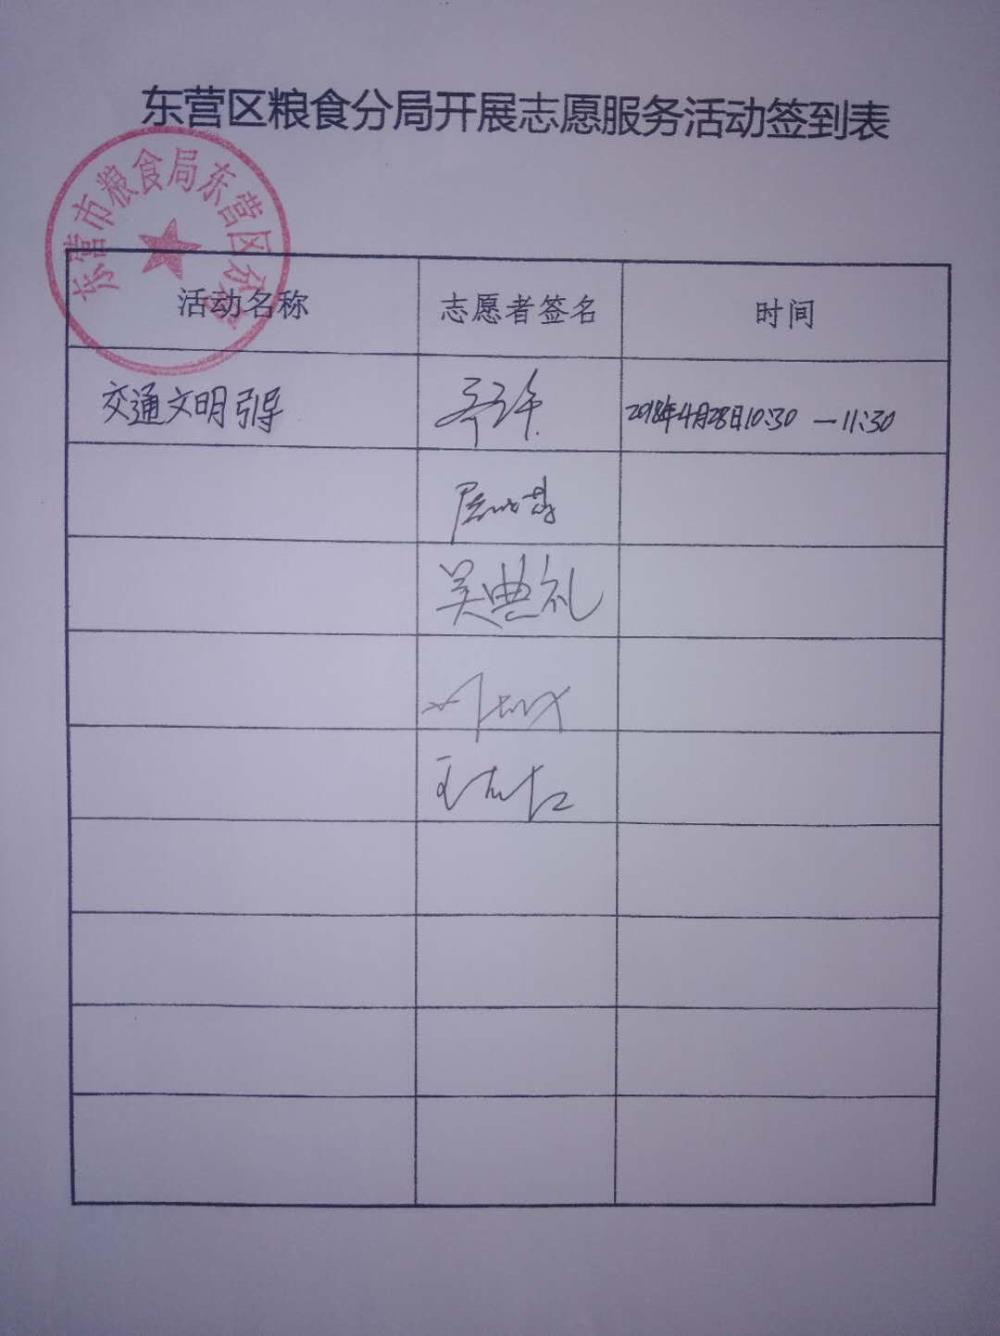 东营区粮食分局开展志愿服务活动签到表
东营市粮食局东营区分局
活动名称 志愿者签名 时间
交通文明引导 2018年4月28日10:30 — 11:30
吴典礼